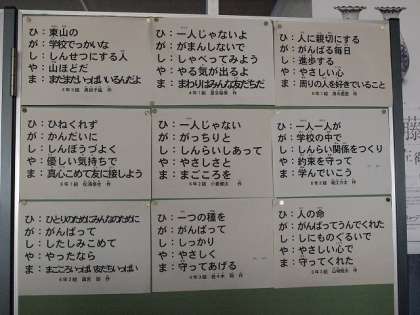 ひ：東山の
が：学校でっかいな
し：しんせつにする人
や：山ほどだ
ま：まだまだいっぱいいるんだよ
ひ：一人じゃないよ
が：がまんしないで
し：しゃべってみよう
や：やる気が出るよ
ま：まわりはみんな友だちだ
ひ：人に親切にする
が：がんばる毎日
し：進歩する
や：やさしい心
ま：周りの人を好きでいること
ひ：ひねくれず
が：かんだいに
し：しんぼうづよく
や：優しい気持ちで
ま：真心こめて友に接しよう
ひ：一人じゃない
が：がっちりと
し：しんらいしあって
や：やさしさと
ま：まごころを
ひ：一人一人が
が：学校の中で
し：しんらい関係をつくり
や：約束を守って
ま：学んでいこう
ひ：ひとりのためにみんなのために
が：がんばって
し：したしみこめて
や：やったなら
ま：まごころいっぱい友だちいっぱい
ひ：一つの種を
が：がんばって
し：しっかり
や：やさしく
ま：守ってあげる
ひ：人の命
が：がんばってうんでくれた
し：しにものぐるいで
や：やさしい心で
ま：守ってくれた